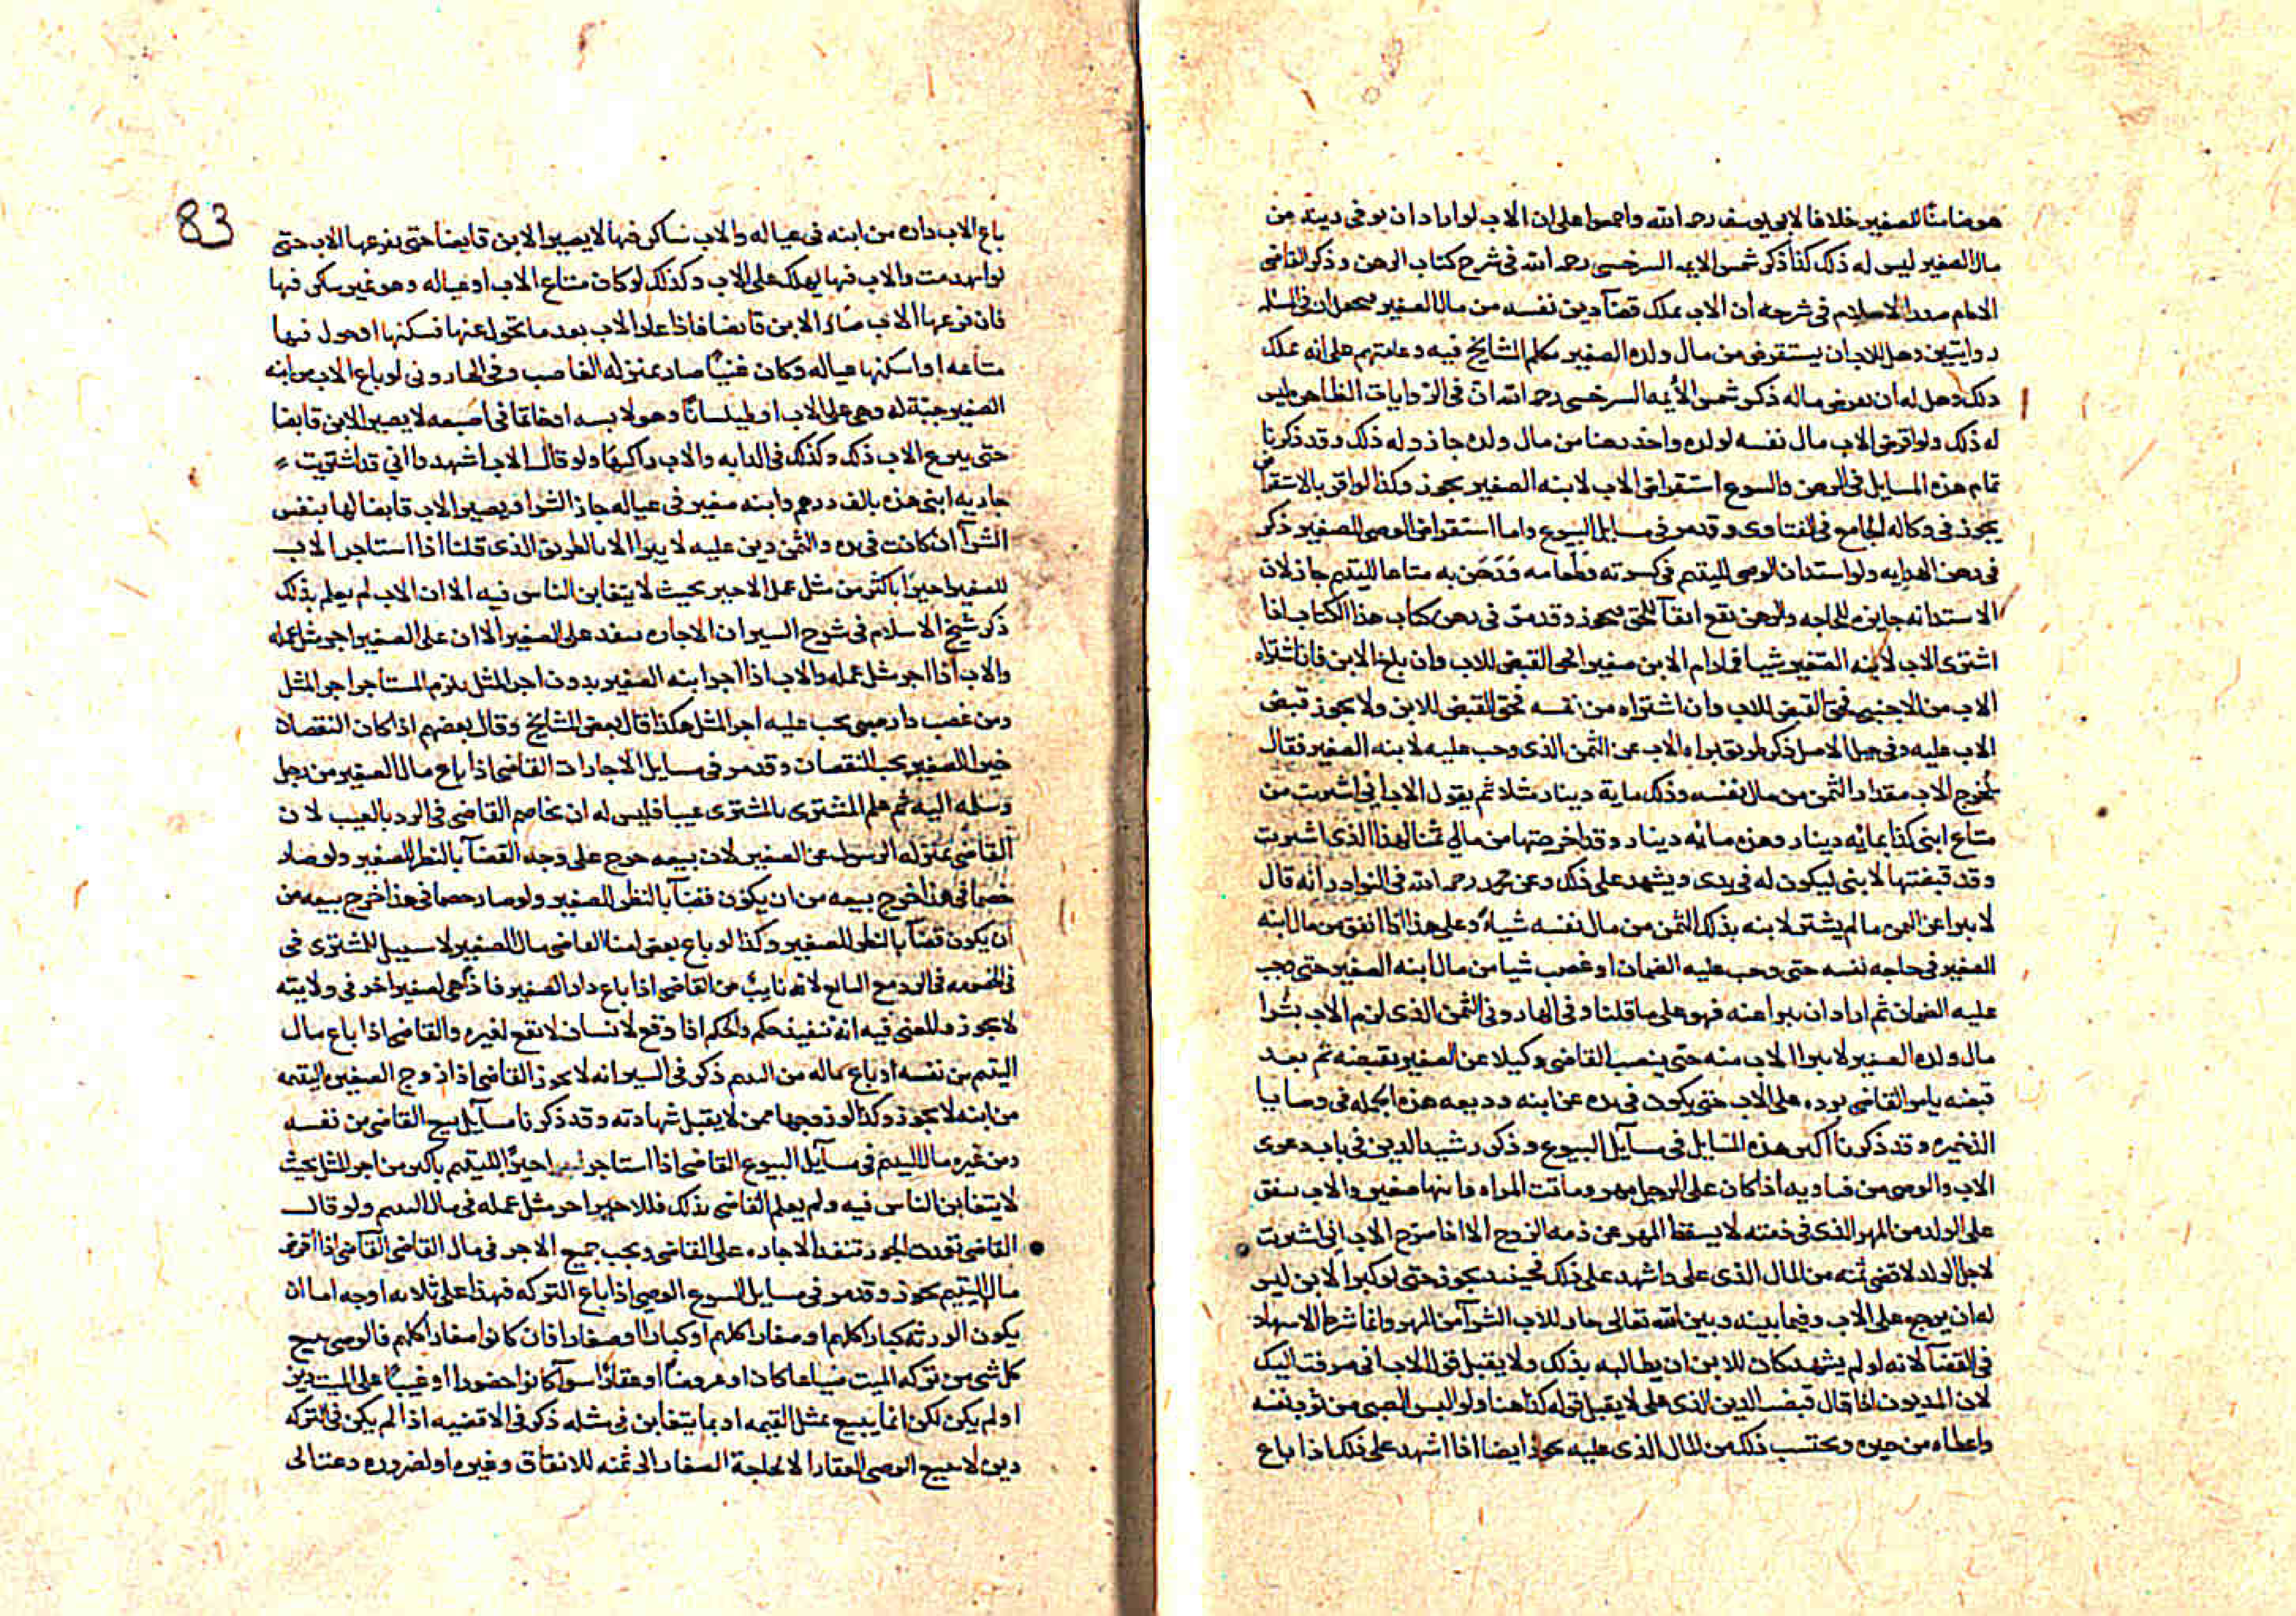 هو ضامنًا للصغير خلافا لابى يوسف رحمه الله واجمعوا على ان الاب لو اراد ان يوفى دينه من
مال الصغير ليس له ذلك كذا ذكر شمس الايمه السرخسى رحمه الله فى شرح كتاب الرهن وذكر القاضى
الامام صدر الاسلام فى شرحه ان الاب يملك قضآ دين نفسه من مال الصغير فيحمل ان فى المسله
روايتين وهل للاب ان يستقرض من مال ولده الصغير تكلم المشايخ فيه وعامتهم على انه يملك
ذلك وهل له ان يقرض ماله ذكر شمس الأيمه السرخسى رحمه الله ان فى الروايات الظاهره ليس
له ذلك ولو اقرض الاب مال نفسه لولده واخذ رهنا من مال ولده جاز وله ذلك وقد ذكرنا
تمام هذه المسايل فى الرهن والبيوع استقراض الاب لابنه الصغير يجوز وكذا لو اقر بالاستقراض
يجوز فى وكاله الجامع فى الفتاوى وقد مر فى مسايل البيوع واما استقراض الوصى للصغير ذكر
فى رهن الهدايه ولو استدان الوصى لليتيم فى كسوته وطعامه ورَهَن به متاعا لليتيم جاز لان
الاستدانه جايزه للحاجه والرهن يقع ايفآ للحق فيجوز وقد مر فى رهن كتاب هذا الكتاب اذا
اشترى الاب لابنه الصغير شيا فما دام الابن صغيرا فحق القبض للاب وان بلغ الابن فان اشتراه
الاب من الاجنبى فحق القبض للاب وان اشتراه من نفسه فحق القبض للابن ولا يجوز قبض
الاب عليه وفى حيل الاصل ذكر طريق براه الاب عن الثمن الذى وجب عليه لابنه الصغير فقال
يُخرج الاب مقدار الثمن من مال نفسه وذلك ماية دينار مثلا ثم يقول الاب انى اشتريت من
متاع ابنى كذا بمايه دينار وهذه مائه دينار وقد اخرجتها من مالى ثمنا لهذا الذى اشتريت
وقد قبضتها لابنى ليكون له فى يدى ويشهد على ذلك وعن محمد رحمه الله فى النوادر انه قال
لا يبرا عن الثمن ما لم يشتر لابنه بذلك الثمن من مال نفسه شياءً وعلى هذا اذا انفق من مال ابنه
الصغير فى حاجه نفسه حتى وجب عليه الضمان او غصب شيا من مال ابنه الصغير حتى وجب
عليه الضمان ثم اراد ان يبرا عنه فهو على ما قلنا وفى الهارونى الثمن الذى لزم الاب بشرا
مال ولده الصغير لا يبرا الاب منه حتى ينصب القاضى وكيلا عن الصغير يقبضه ثم بعد
قبضه يامر القاضى برده على الاب حتى يكون فى يده عن ابنه وديعه هذه الجمله فى وصايا
الذخيره وقد ذكرنا اكثر هذه المسايل فى مسآيل البيوع وذكر رشيد الدين فى باب دعوى
الاب والوصى من فتاويه اذا كان على الرجل مهر وماتت المراه وابنها صغير والاب ينفق
على الولد من المهر الذى فى ذمته لا يسقط المهر عن ذمه الزوج الا اذا صرح الاب انى اشتريت
لاجل الولد لاقضى ثمنه من المال الذى على واشهد على ذلك فحينيذ يجوز حتى لو كبر الابن ليس
له ان يرجع على الاب وفيما بينه وبين الله تعالى جاز للاب الشرآ من المهر وانما شرط الاشهاد
فى القضآ لانه لو لم يشهد كان للابن ان يطالبه بذلك ولا يقبل قول الاب انى صرفت اليك
لان المديون اذا قال قبضت الدين الذى على لا يقبل قوله كذا هنا ولو البس الصبى من ثوب نفسه
واعطاه من خبزه ويحتسب ذلك من المال الذى عليه يجوز ايضا اذا اشهد على ذلك اذا باع
83
باع الاب داره من ابنه فى عياله والاب ساكن فيها لا يصير الابن قابضا حتى يفرغها الاب حتى
لو انهدمت والاب فيها يهلك على الاب وكذلك لو كان متاع الاب او عياله وهو غير ساكن فيها
فان فرغها الاب صار الابن قابضا فاذا عاد الاب بعد ما تحول عنها فسكنها او حول فيها
متاعه او اسكنها عياله وكان غنيًا صار بمنزله الغاصب وفى الهارونى لو باع الاب من ابنه
الصغير جبّة له وهى على الاب او طيلسانًا وهو لابسه او خاتما فى اصبعه لا يصير الابن قابضا
حتى ينزع الاب ذلك وكذلك فى الدابه والاب راكبها ولو قال الاب اشهدوا انى قد اشتريت
جاريه ابنى هذه بالف درهم وابنه صغير فى عياله جاز الشرا ويصير الاب قابضا لها بنفس
الشرآ ان كانت فى يده والثمن دين عليه لا يبرا الا بالطريق الذى قلنا اذا استاجر الاب
للصغير اجيرًا باكثر من مثل عمل الاجير بحيث لا يتغابن الناس فيه الا ان الاب لم يعلم بذلك
ذكر شيخ الاسلام فى شرح السير ان الاجاره تنفذ على الصغير الا ان على الصغير اجر مثل عمله
والاب اذا اجر مثل عمله والاب اذا اجر ابنه الصغير بدون اجر المثل يلزم المستأجر اجر المثل
ومن غصب دار صبى يجب عليه اجر المثل هكذا قال بعض المشايخ وقال بعضهم اذا كان النقصان
خيرا للصغير يجب النقصان وقد مر فى مسايل الاجارات القاضى اذا باع مال الصغير من رجل
وسلمه اليه ثم علم المشترى بالمشترى عيبا فليس له ان يخاصم القاضى فى الرد بالعيب لان
القاضى بمنزله الرسول عن الصغير لان بيعه خرج على وجه القضآ بالنظر للصغير ولو صار
خصما فى هذا خرج بيعه من ان يكون قضآ بالنظر للصغير ولو صار خصما فى هذا خرج بيعه من
ان يكون قضآ بالنظر للصغير وكذا لو باع بعض امنا القاضى مال الصغير لا سبيل للمشترى فى
فى الخصومه فى الرد مع البايع لانه نايبٌ عن القاضى اذا باع دار الصغير فاذا هى لصغير اخر فى ولايته
لا يجوز والمعنى فيه انه تنفيذ حكم والحكم اذا وقع لانسان لا يقع لغيره والقاضى اذا باع مال
اليتيم من نفسه او باع ماله من اليتيم ذكر فى السير انه لا يجوز القاضى اذا زوج الصغيره اليتيمه
من ابنه لا يجوز وكذا لو زوجها ممن لا يقبل شهادته وقد ذكرنا مسآيل بيع القاضى من نفسه
ومن غيره مال اليتيم فى مسآيل البيوع القاضى اذا استاجر اجيرًا لليتيم باكثر من اجر المثل بحيث
لا يتغابن الناس فيه ولم يعلم القاضى بذلك فللاجير اجر مثل عمله فى مال اليتيم ولو قال
القاضى تعمدت الجور تنفذ الاجاره على القاضى ويجب جميع الاجر فى مال القاضى القآضى اذا اقرض
مال اليتيم يجوز وقد مر فى مسايل البيوع الوصى اذا باع التركه فهذا على ثلاثه اوجه اما ان
يكون الورثه كبارا كلهم او صغارا كلهم او كبارا وصغارا فان كانوا صغارا كلهم فالوصى يبيع
كل شى من تركه الميت ضياعا كان او عروضًا او عقارًا سوآ كانوا حضورا او غيبًا على الميت دين
او لم يكن لكن انما يبيع بمثل القيمه او بما يتغابن فى مثله ذكر فى الاقضيه اذا لم يكن فى التركه
دين لا يبيع الوصى العقار الا لحاجة الصغار الى ثمنه للانفاق وغيره او لضروره دعتنا الى